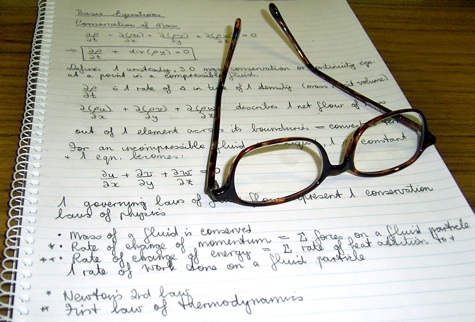 Basic Equations
Conservation of Mass
∂ρ/∂t + ∂(ρu)/∂x + ∂(ρv)/∂y + ∂(ρw)/∂z = 0
⇒ ∂ρ/∂t + div(ρu) = 0
1 unsteady, 3D mass conservation or continuity eqn.
at a point in a compressible fluid.
∂ρ/∂t is 1 rate of Δ in t of 1 density (mass volume)
∂(ρu)/∂x + ∂(ρv)/∂y + ∂(ρw)/∂z describes 1 net flow of
out of 1 element across its boundaries =
For an incompressible fluid constant
+ 1 eqn. becomes:
∂u/∂x + ∂v/∂y + ∂w/∂z = 0
1 governing laws of flow represent 1 conservation
laws of physics
• Mass of a fluid is conserved
* • Rate of change of momentum = Σ forces on a fluid particle
** • Rate of change of energy = Σ rate of heat addition to +
1 rate of work done on a fluid particle
* Newton's 2nd law
** First law of thermodynamics